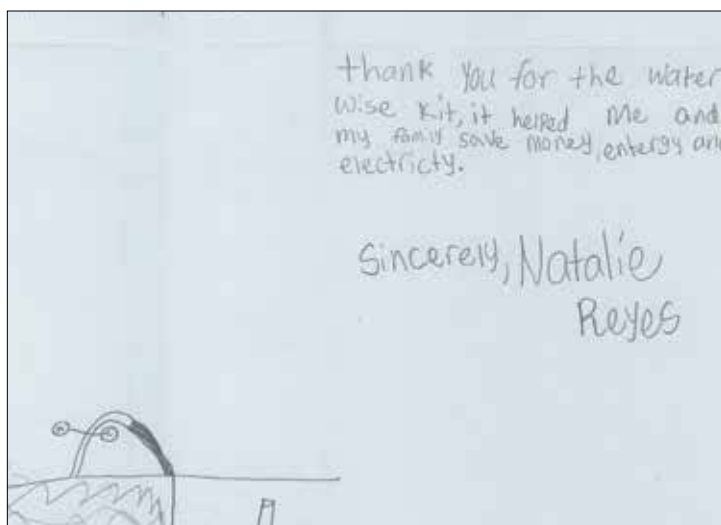 thank you for the water
wise kit, it helped me and
my famiy save money, entergy and
electricty.
Sincerely, Natalie
Reyes